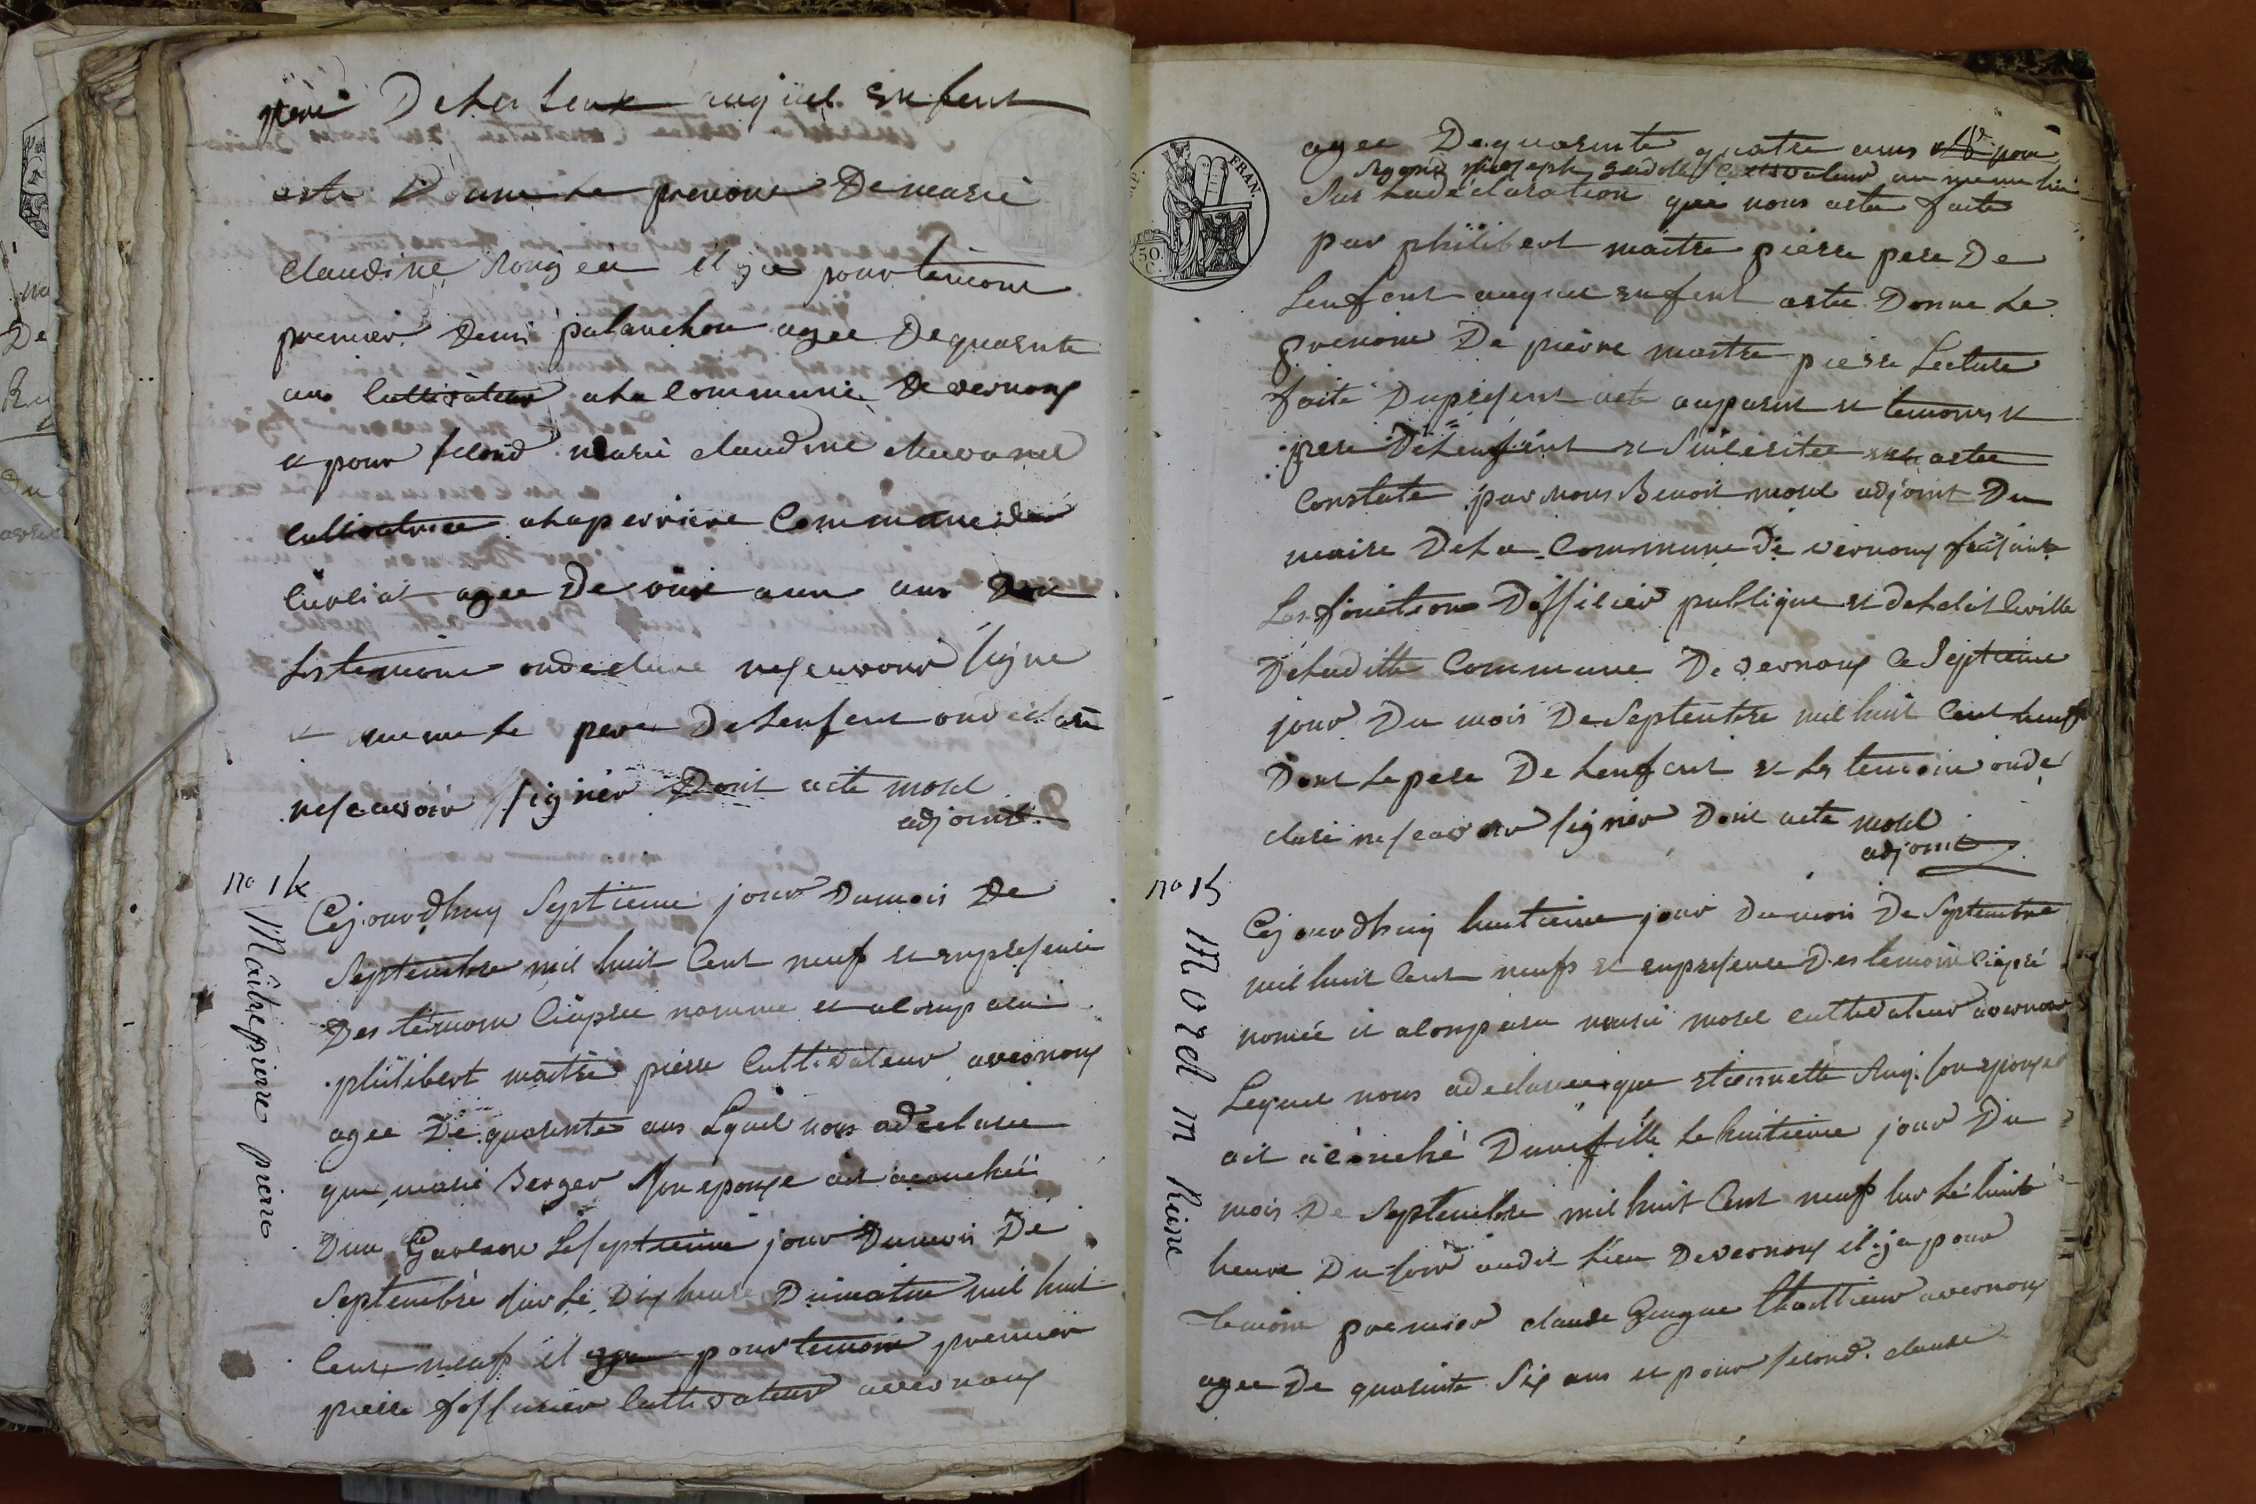 père De Len Lenx auquel Enfent
aste Donne Le prenome De marie
Claudine Rougeu il ya pour temoins
premier Deni palanchon agee Dequarente
ans Cultivateur ala Commune De vernouy
et pour second marie claudine
Cultivatrice alaperriere Commune de
agee De ans
Lestemoins ondeclare nescavoir signe
et meme Le pere De Lenfent ondeclare
nescavoir signer Dont acte morel
adjoint
no 14
Maîtrepierre pierre
Cejourdhuy Septieme jour Dumois De
Septembre mil huit Cent neuf et enpresence
Des témoins Ciapres nomme et alomparu
philibert maitre pierre Cultivateur avernouy
agee De quarente ans Lequel nous adeclaree
que marie Berger son epouse ait acouchée
Dun Garcson Leseptieme jour Dumois De
Septembre sur Le Dix heure Dumatin mil huit
Cent neuf il ya pour temoins premier
pierre Cultivateur avernouy
REP. FRAN.
50. C.
agee De quarente quatre ans pour
segond joseph Cultivateur au meme lieu
Sur Ladeclaration qui nous astee faite
par philibert maitre pierre pere De
Lenfent auquel enfent astee Donne Le
prenome De pierre maitre pierre Lecture
faite Dupresent acte auparent et temoins et
pere DeLenfent et Sinceritee astee
Constate par nous Benoit morel adjoint Du
maire DeLa Commune De vernouy fesant
Les fonction Dofficier publique et delelit Civille
DeLaditte Commune De vernouy Ce Septieme
jour Du mois De Septembre mil huit Cent neuf
Dont Le pere De Lenfent et Les temoins onde
clare nescavoir signer Dont acte morel
adjoint
no 15
Morel m Reine
Cejourdhuy huitieme jour Du mois De Septembre
mil huit Cent neuf et enpresence Des temoins Ciapré
nomée et alomparu marie morel cultivateur avernouy
Lequel nous adeclaree que etiennette son epouse
ait acouché Dunefille Le huitieme jour Du
mois De Septembre mil huit Cent neuf sur Le huite
heure Du soir audit Lieu Devernouy il ya pour
temoins premier claude avernouy
agee De quarente Six ans et pour second claude